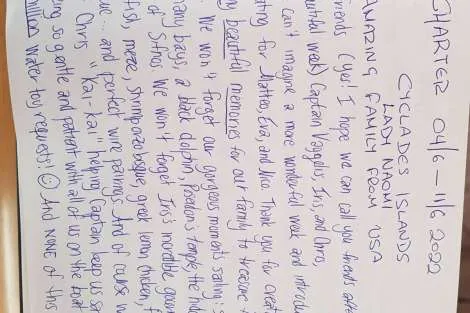 CHARTER 04/6 - 11/6 2022
CYCLADES ISLANDS
LADY NAOMI
AMAZING FAMILY FROM USA
friends (Yes! I hope we can call you friends afte
utiful week) Captain Vaggelis, Iris, and Chris,
can't imagine a more wonderful week and introdu
ating for Matteo, Eva, and Nico. Thank you for creat
ny beautiful memories for our family to treasure
. We won't forget our gorgeous moments sailing: s
any bays, a black dolphin, Poseidon's temple, the
of Sifnos. We won't forget Iris's incredible gourm
meze, shrimp orzo bisque, greek lemon chicken, f
... and perfect wine pairings. And of course w
Chris "Kai-kai" helping Captain keep us sa
ng so gentle and patient with all of us on the boat
million water toy requests! ☺ And NONE of this